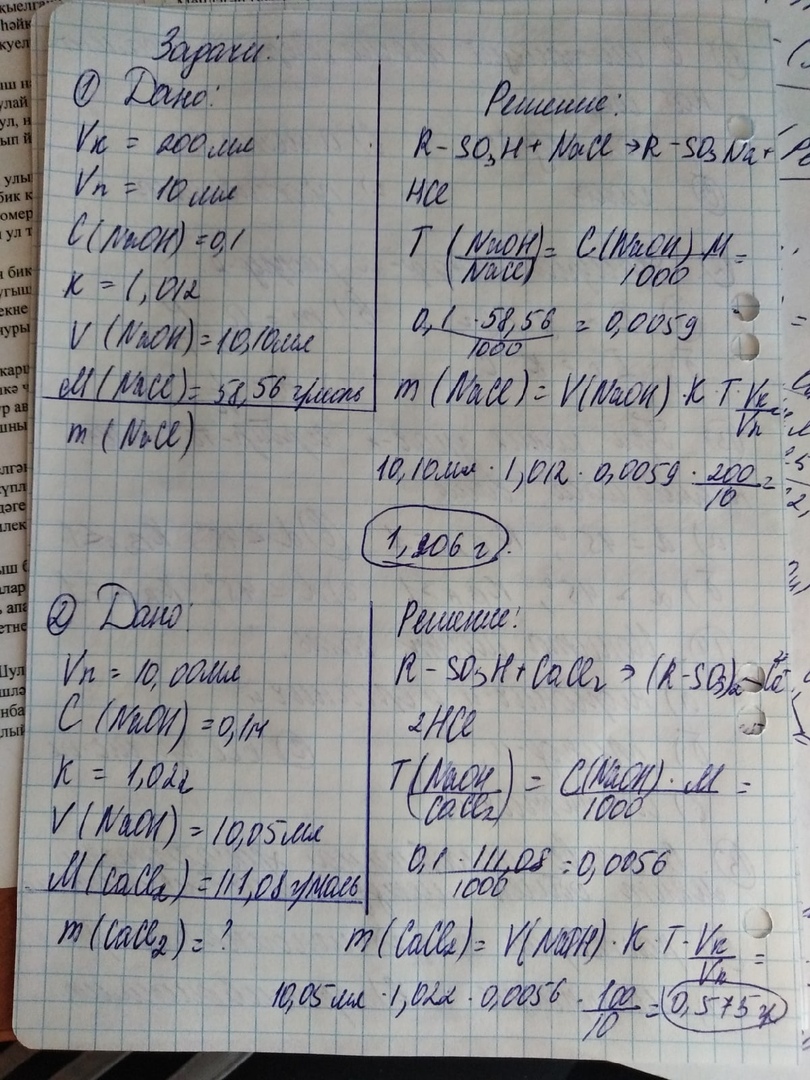 Задачи:
① Дано:
Vк = 200 мл
Vп = 10 мл
C(NaOH) = 0,1
K = 1,012
V(NaOH) = 10,10 мл
M(NaCl) = 58,56 г/моль
m(NaCl)
Решение:
R-SO₃H + NaCl → R-SO₃Na +
HCl
T (NaOH/NaCl) = C(NaOH)·M/1000 =
0,1 · 58,56/1000 = 0,0059
m(NaCl) = V(NaOH)·K·T·Vк/Vп =
10,10 мл · 1,012 · 0,0059 · 200/10 =
1,206 г.
② Дано:
Vп = 10,00 мл
C(NaOH) = 0,1м
K = 1,022
V(NaOH) = 10,05 мл
M(CaCl₂) = 111,08 г/моль
m(CaCl₂) = ?
Решение:
R-SO₃H + CaCl₂ → (R-SO₃)₂
2HCl
T (NaOH/CaCl₂) = C(NaOH)·M/1000 =
0,1 · 111,08/1000 = 0,0056
m(CaCl₂) = V(NaOH)·K·T·Vк/Vп =
10,05 мл · 1,022 · 0,0056 · 100/10 = 0,575 г